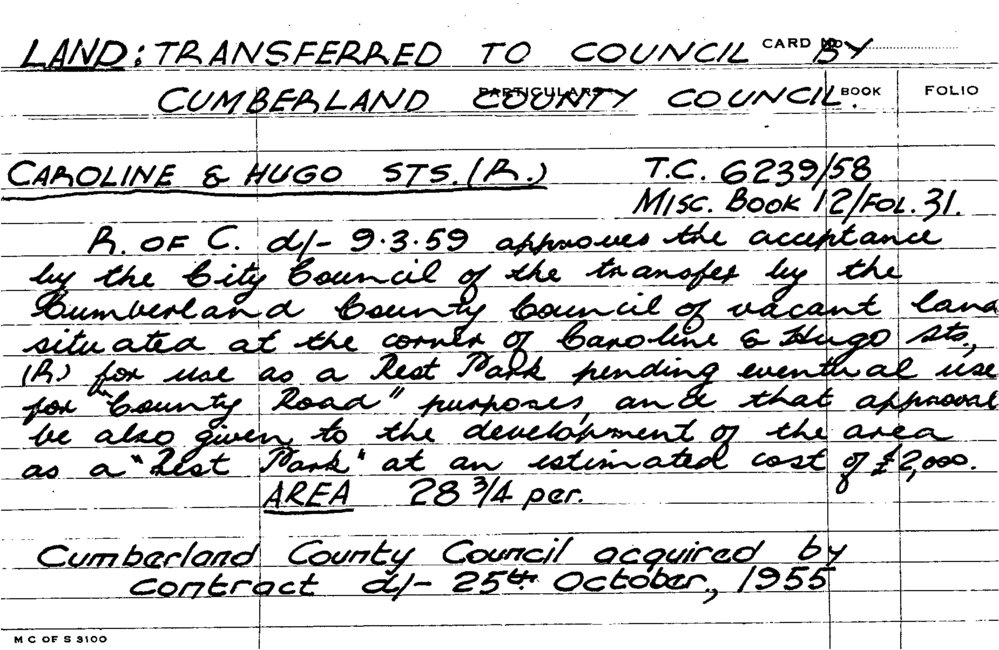 LAND: TRANSFERRED TO COUNCIL BY
CARD No.
CUMBERLAND COUNTY COUNCIL.
PARTICULARS BOOK FOLIO
CAROLINE & HUGO STS. (R.) T.C. 6239/58
MISC. BOOK 12/FOL. 31.
R. OF C. d/- 9.3.59 approves the acceptance
by the City Council of the transfer by the
Cumberland County Council of vacant land
situated at the corner of Caroline & Hugo Sts,
(R.) for use as a Rest Park pending eventual use
for "County Road" purposes, and that approval
be also given to the development of the area
as a "Rest Park" at an estimated cost of £2,000.
AREA 28 3/4 per.
Cumberland County Council acquired by
contract d/- 25th October, 1955
M C OF S 3100